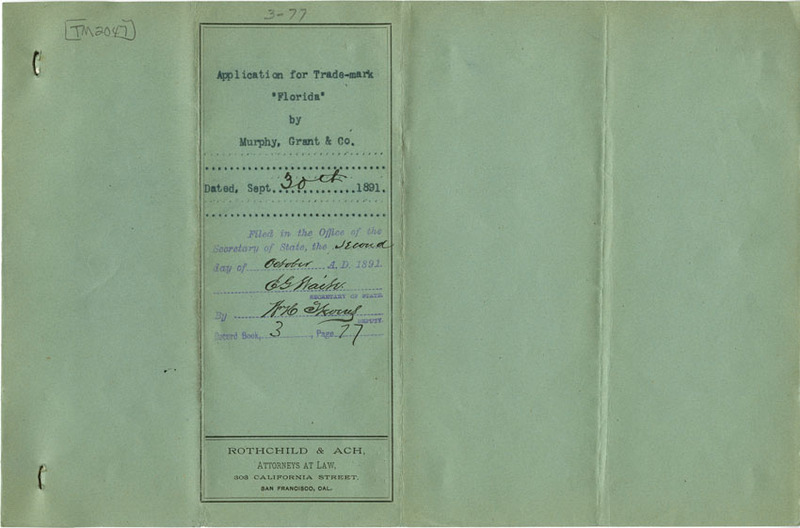 3-77
[TM2047]
Application for Trade-mark
"Florida"
by
Murphy, Grant & Co.
Dated, Sept. 30th 1891.
Filed in the Office of the
Secretary of State, the second
day of October A. D. 1891.
E G Waite
SECRETARY OF STATE.
By W H
DEPUTY.
Record Book, 3, Page 77
ROTHCHILD & ACH,
ATTORNEYS AT LAW,
303 CALIFORNIA STREET,
SAN FRANCISCO, CAL.